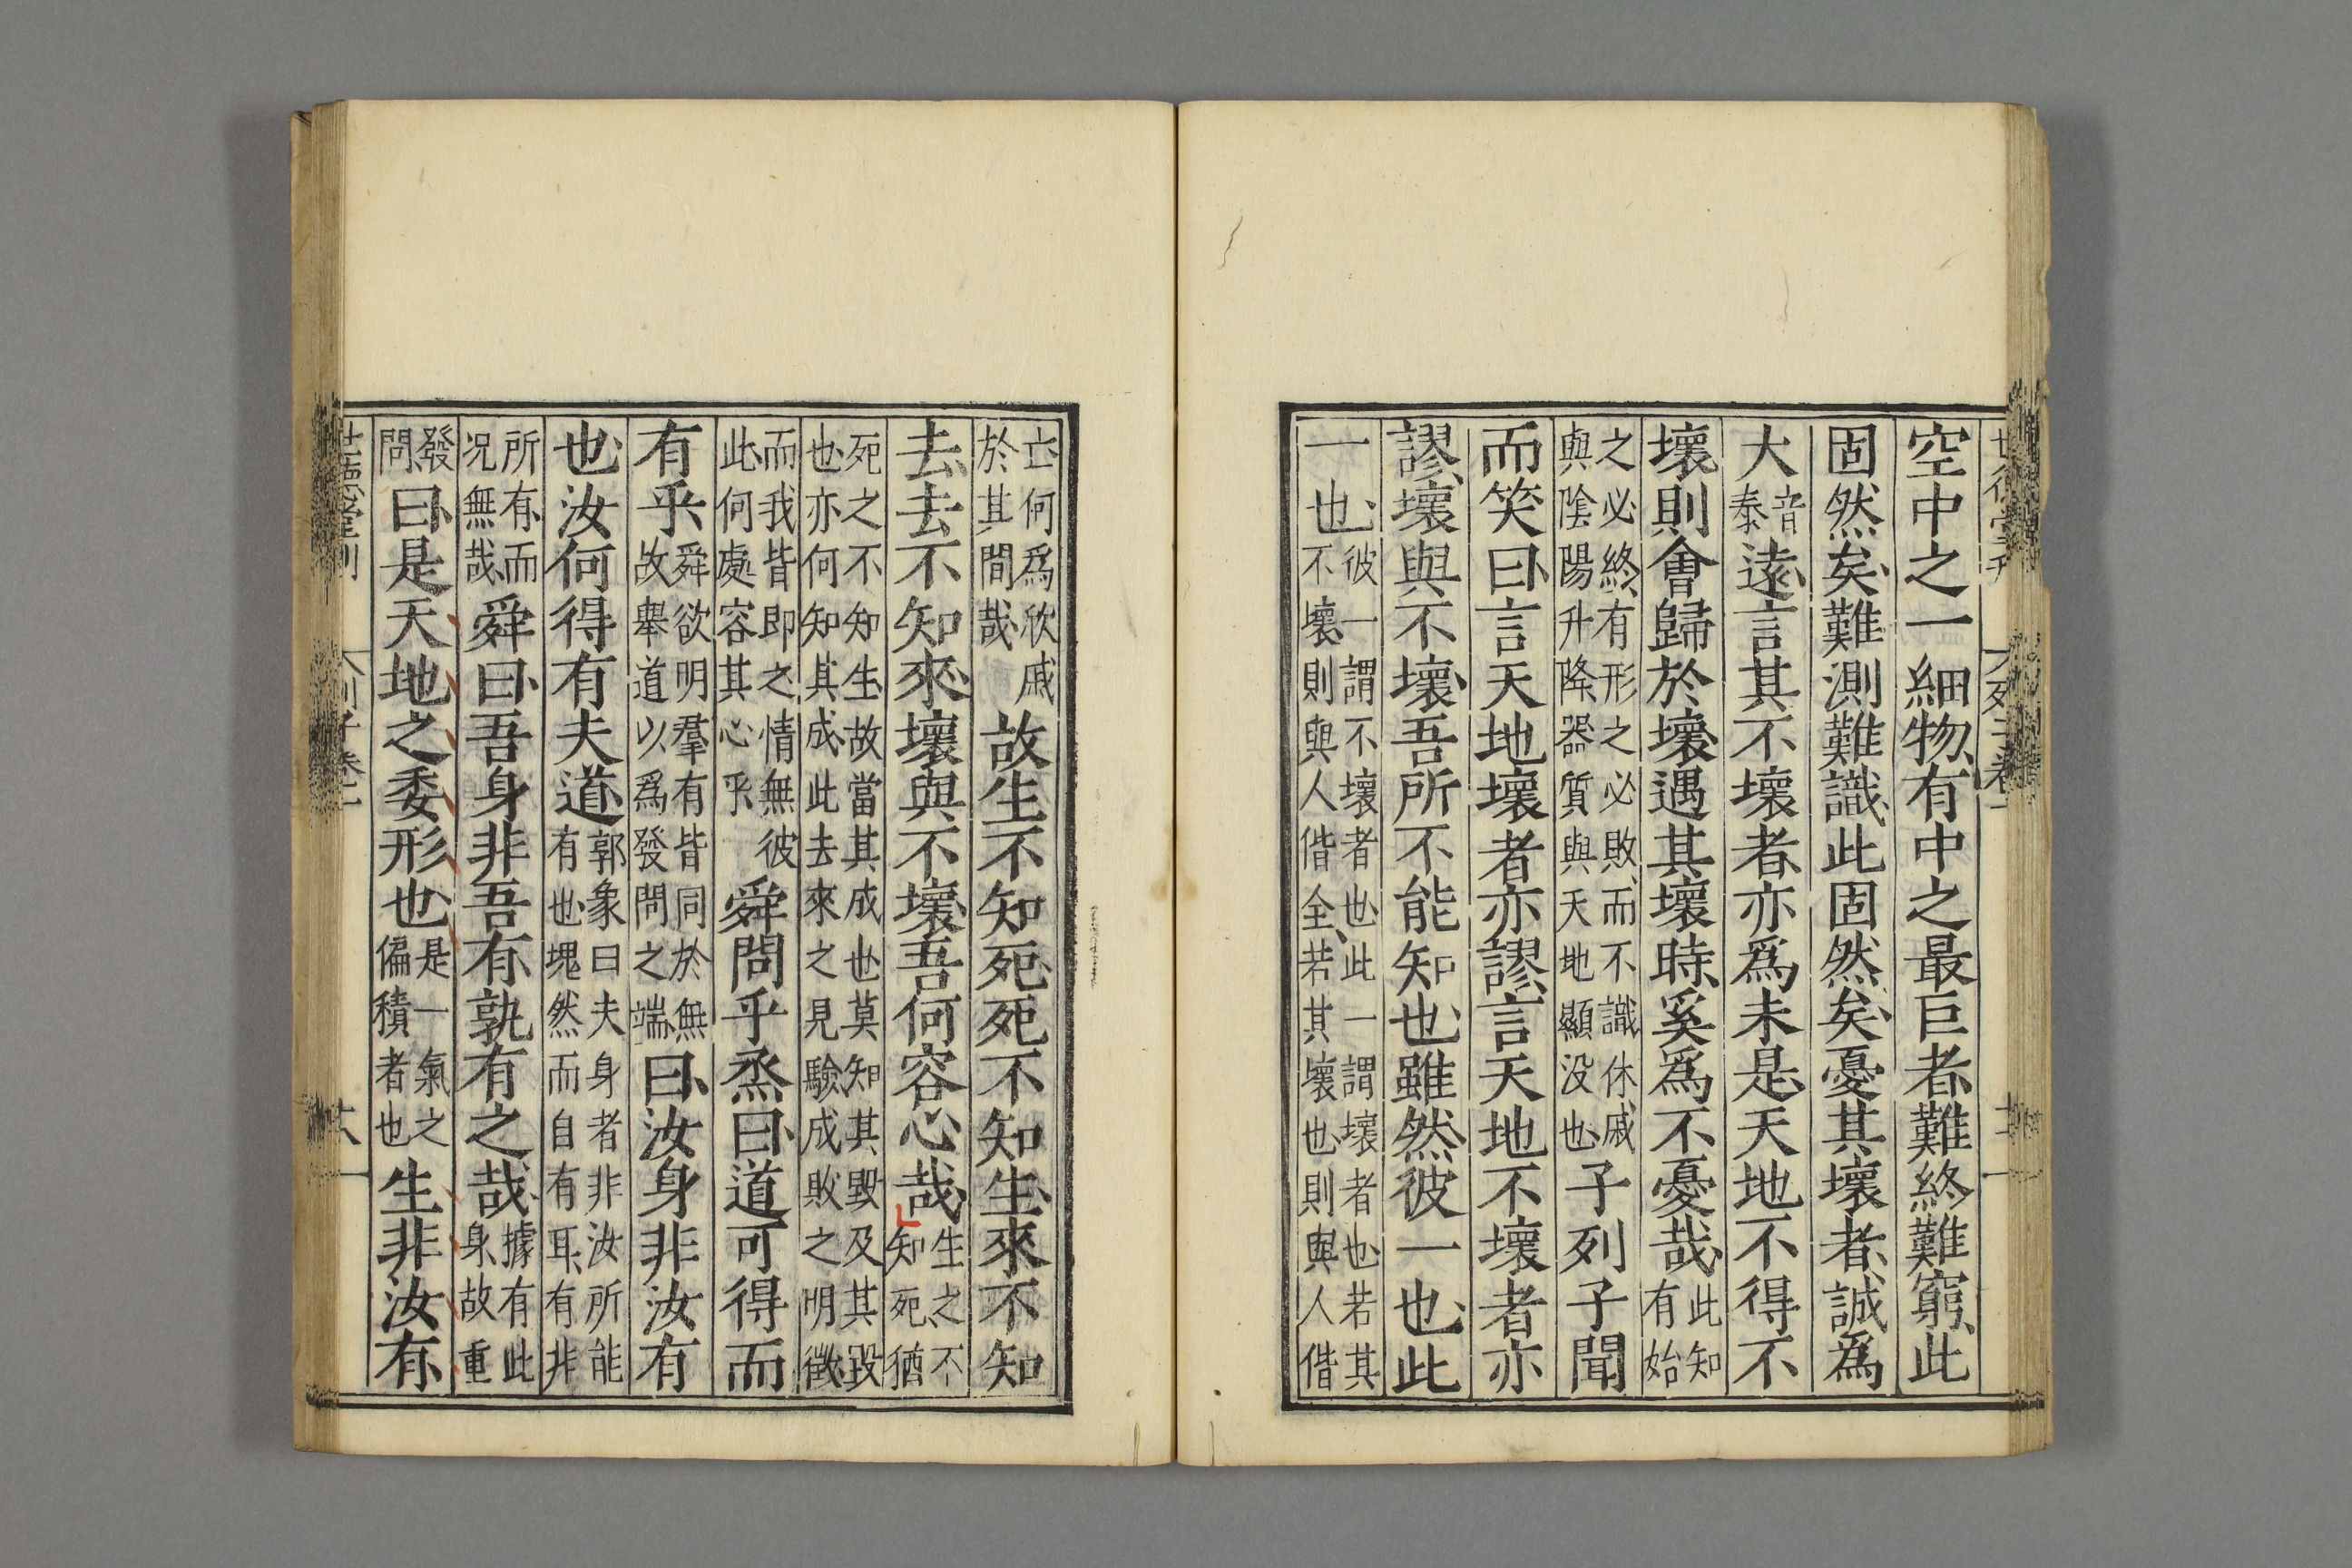 空中之一細物有中之最巨者難終難窮此
固然矣難測難識此固然矣憂其壞者誠爲
大音泰遠言其不壞者亦爲未是天地不得不
壞則會歸於壞遇其壞時奚爲不憂哉此知有始
之必終有形之必敗而不識休戚與陰陽升降器質與天地顯没也子列子聞
而笑曰言天地壞者亦謬言天地不壞者亦
謬壞與不壞吾所不能知也雖然彼一也此
一也彼一謂不壞者也此一謂壞者也若其不壞則與人偕全若其壞也則與人偕
亡何爲欣戚於其間哉故生不知死死不知生來不知
去去不知來壞與不壞吾何容心哉生之不知死猶
死之不知生故當其成也莫知其毀及其毀也亦何知其成此去來之見驗成敗之明徵
而我皆即之情無彼此何處容其心乎舜問乎烝曰道可得而
有乎舜欲明羣有皆同於無故舉道以爲發問之端曰汝身非汝有
也汝何得有夫道郭象曰夫身者非汝所能有也塊然而自有耳有非
所有而况無哉舜曰吾身非吾有孰有之哉據有此身故重
發問曰是天地之委形也是一氣之偏積者也生非汝有
世德堂刊
列子卷一